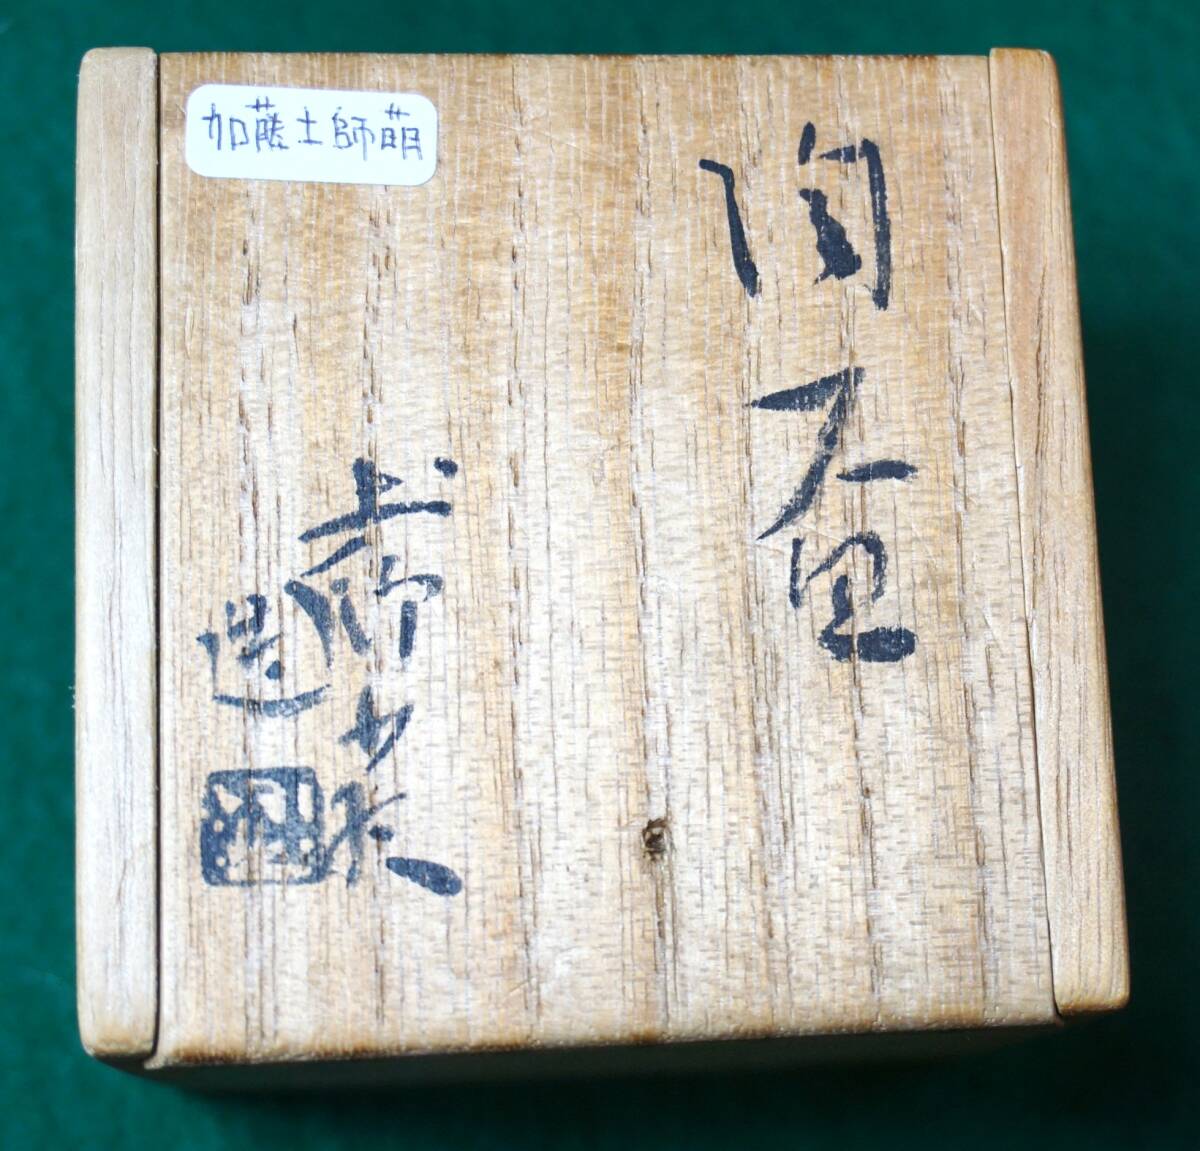 加藤土師萌
陶盃
土師
造